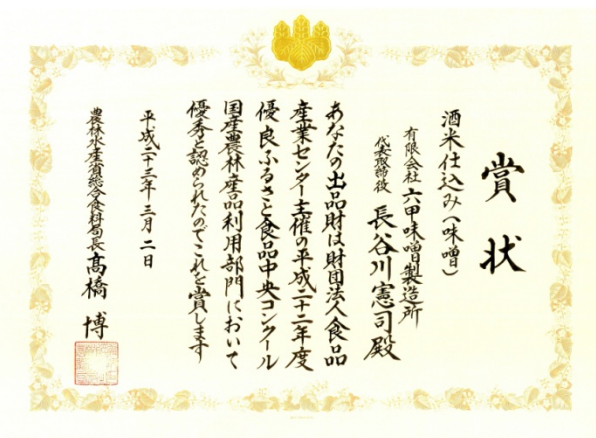 賞状
酒米仕込み(味噌)
有限会社 六甲味噌製造所
代表取締役 長谷川憲司殿
あなたの出品財は財団法人食品
産業センター主催の平成二十二年度
優良ふるさと食品中央コンクール
国産農林産品利用部門において
優秀と認められたのでこれを賞します
平成二十三年三月二日
農林水産省総合食料局長 高橋 博